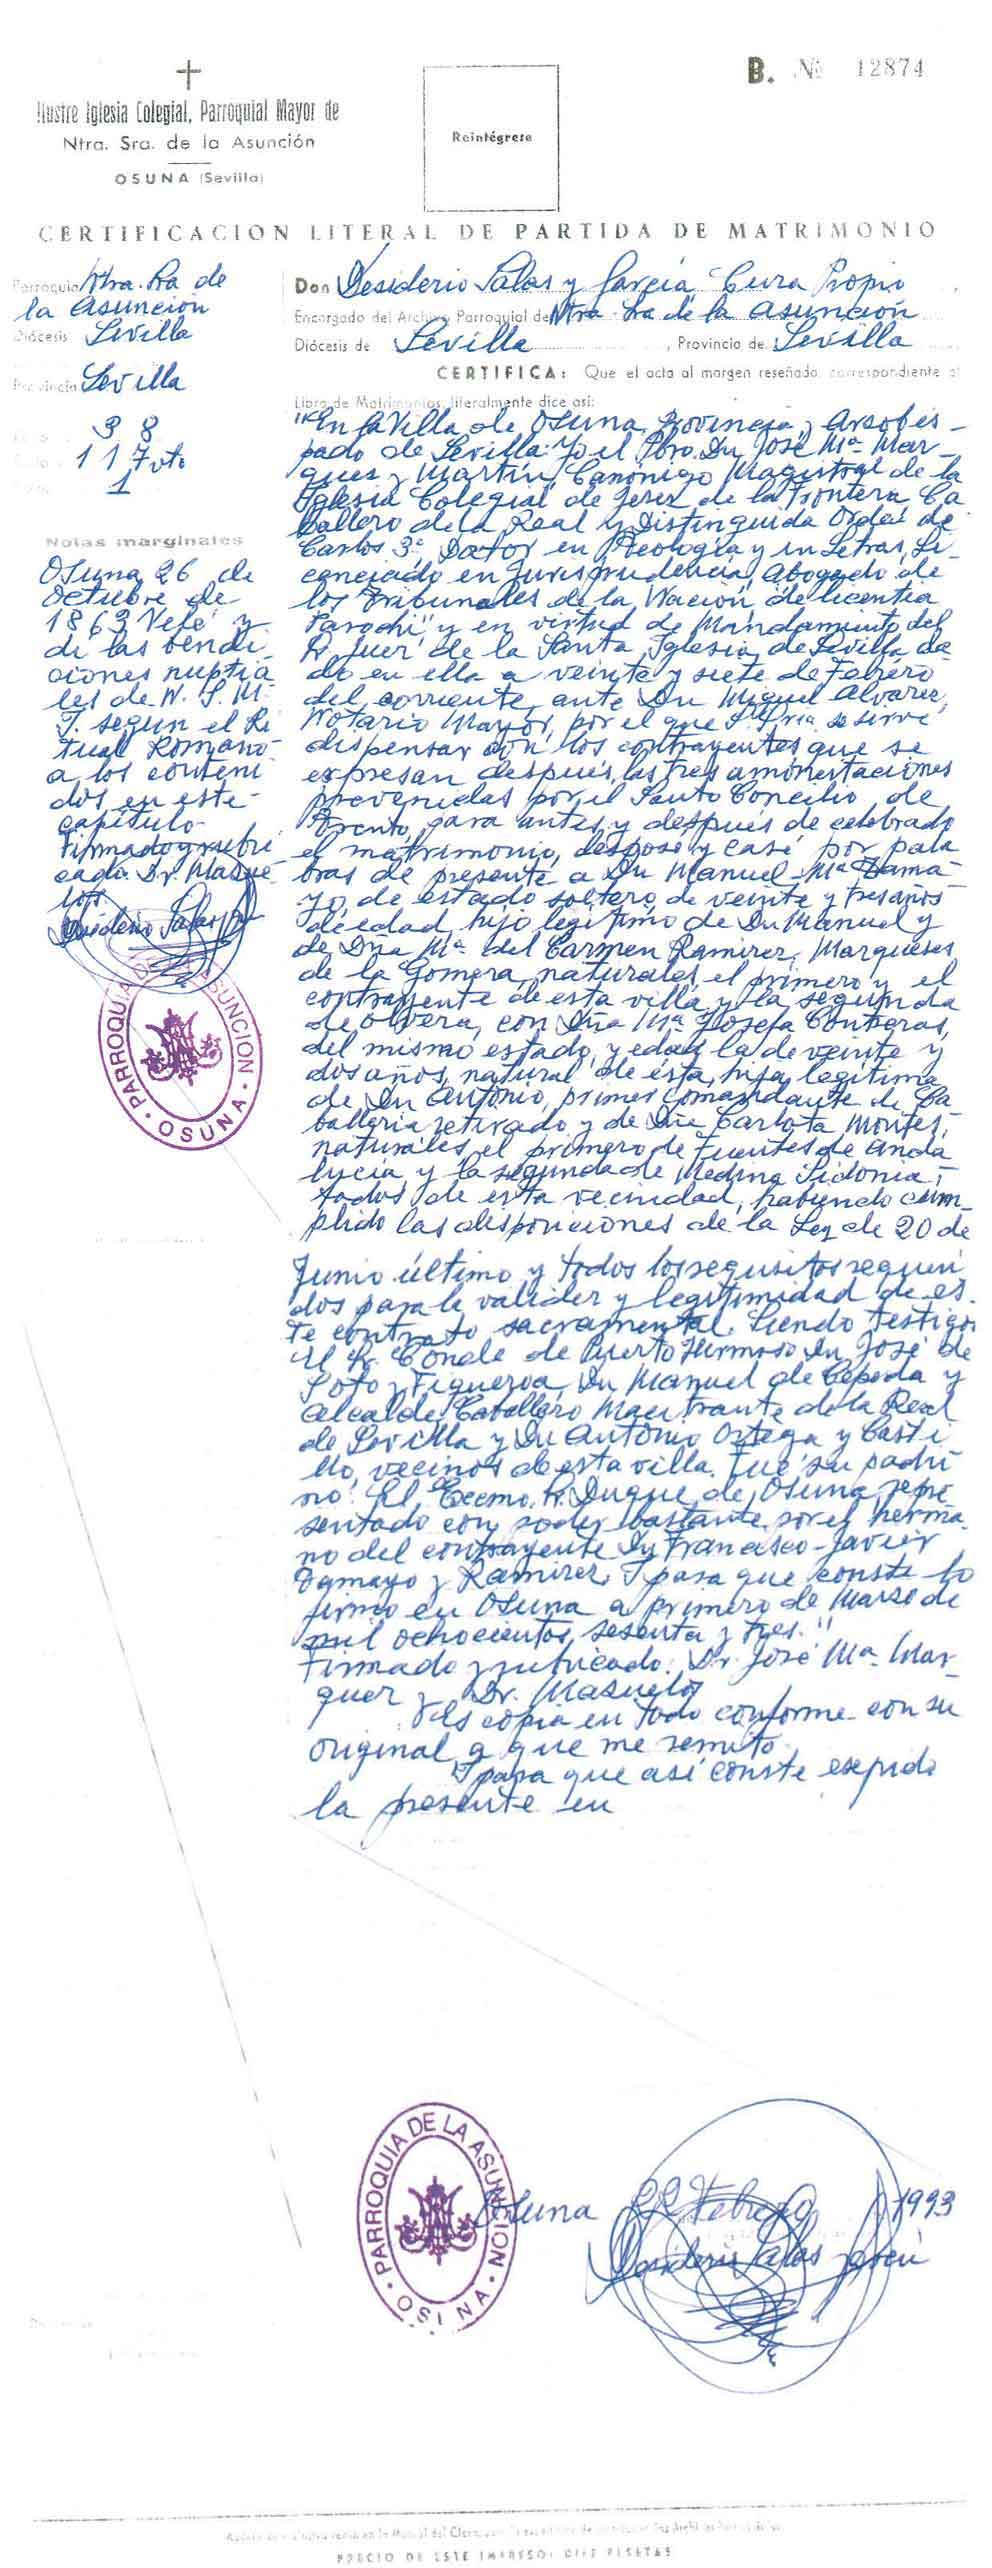 Ilustre Iglesia Colegial, Parroquial Mayor de
Ntra. Sra. de la Asunción
OSUNA (Sevilla)
Reintégrese
B. Nº 12874
CERTIFICACION LITERAL DE PARTIDA DE MATRIMONIO
Parroquia Ntra. Sra de
la Asunción
Diócesis Sevilla
Provincia Sevilla
38
117 vto
1
Notas marginales
Osuna 26 de
Octubre de
1863 Velé y
di las bendi
ciones nuptia
les de N. S. M.
I. segun el Ri
tual Romano
a los conteni
dos en este
capítulo
Firmado y rubri
cado. Dr. Mazue
los
Desiderio Salas
PARROQUIA DE LA ASUNCION · OSUNA ·
Don Desiderio Salas y García, Cura Propio
Encargado del Archivo Parroquial de Ntra Sra de la Asunción
Diócesis de Sevilla, Provincia de Sevilla
CERTIFICA: Que el acta al margen reseñada, correspondiente al
Libro de Matrimonios, literalmente dice así:
"En la Villa de Osuna, Provincia y Arzobis-
pado de Sevilla: Yo el Pbro. Dn José Mª Mar-
ques y Martín, Canónigo Magistral de la
Iglesia Colegial de Jerez de la Frontera, Ca
ballero de la Real y Distinguida Orden de
Carlos 3º, Doctor en Teología y en Letras, Li-
cenciado en Jurisprudencia, Abogado de
los Tribunales de la Nación, de licentia
Parochi, y en virtud de Mandamiento del
Sr. Juez de la Santa Iglesia de Sevilla da-
do en ella a veinte y siete de Febrero
del corriente, ante Dn Miguel Alvarez,
Notario Mayor, por el que S. Sria. se sirve
dispensar con los contrayentes que se
expresan después, las tres amonestaciones
prevenidas por el Santo Concilio de
Trento, para antes y después de celebrado
el matrimonio, desposé y casé por pala
bras de presente a Dn Manuel Mª Tama-
yo, de estado soltero, de veinte y tres años
de edad, hijo legítimo de Dn Manuel y
de Dña Mª del Carmen Ramirez, Marqueses
de la Gomera, naturales, el primero y el
contrayente de esta villa y la segunda
de Olvera, con Dña Mª Josefa Contreras,
del mismo estado, y edad la de veinte y
dos años, natural de esta, hija legítima
de Dn Antonio, primer Comandante de Ca
ballería retirado y de Dña Carlota Montes,
naturales, el primero de Fuentes de Anda
lucía y la segunda de Medina Sidonia,
todos de esta vecindad, habiendo cum-
plido las disposiciones de la Ley de 20 de
Junio último y todos los requisitos requeri
dos para la validez y legitimidad de es-
te contrato sacramental. Siendo testigos
el Sr. Conde de Puerto Hermoso Dn José de
Soto y Figueroa, Dn Manuel de Cepeda y
Alcalde, Caballero Maestrante de la Real
de Sevilla y Dn Antonio Ortega y Casti
llo, vecinos de esta villa. Fue su padri
no: El Excmo. Sr. Duque de Osuna, repre
sentado con poder bastante por el herma
no del contrayente Dn Francisco-Javier
Tamayo y Ramirez. Y para que conste lo
firmo en Osuna a primero de Marzo de
mil ochocientos sesenta y tres."
Firmado y rubricado: Dr. José Mª Mar-
quez y Dr. Mazuelos
Es copia en todo conforme con su
original a que me remito.
Y para que así conste expido
la presente en
PARROQUIA DE LA ASUNCION · OSUNA ·
Osuna 22 Febrero 1993
Desiderio Salas García
PRECIO DE ESTE IMPRESO: DIEZ PESETAS